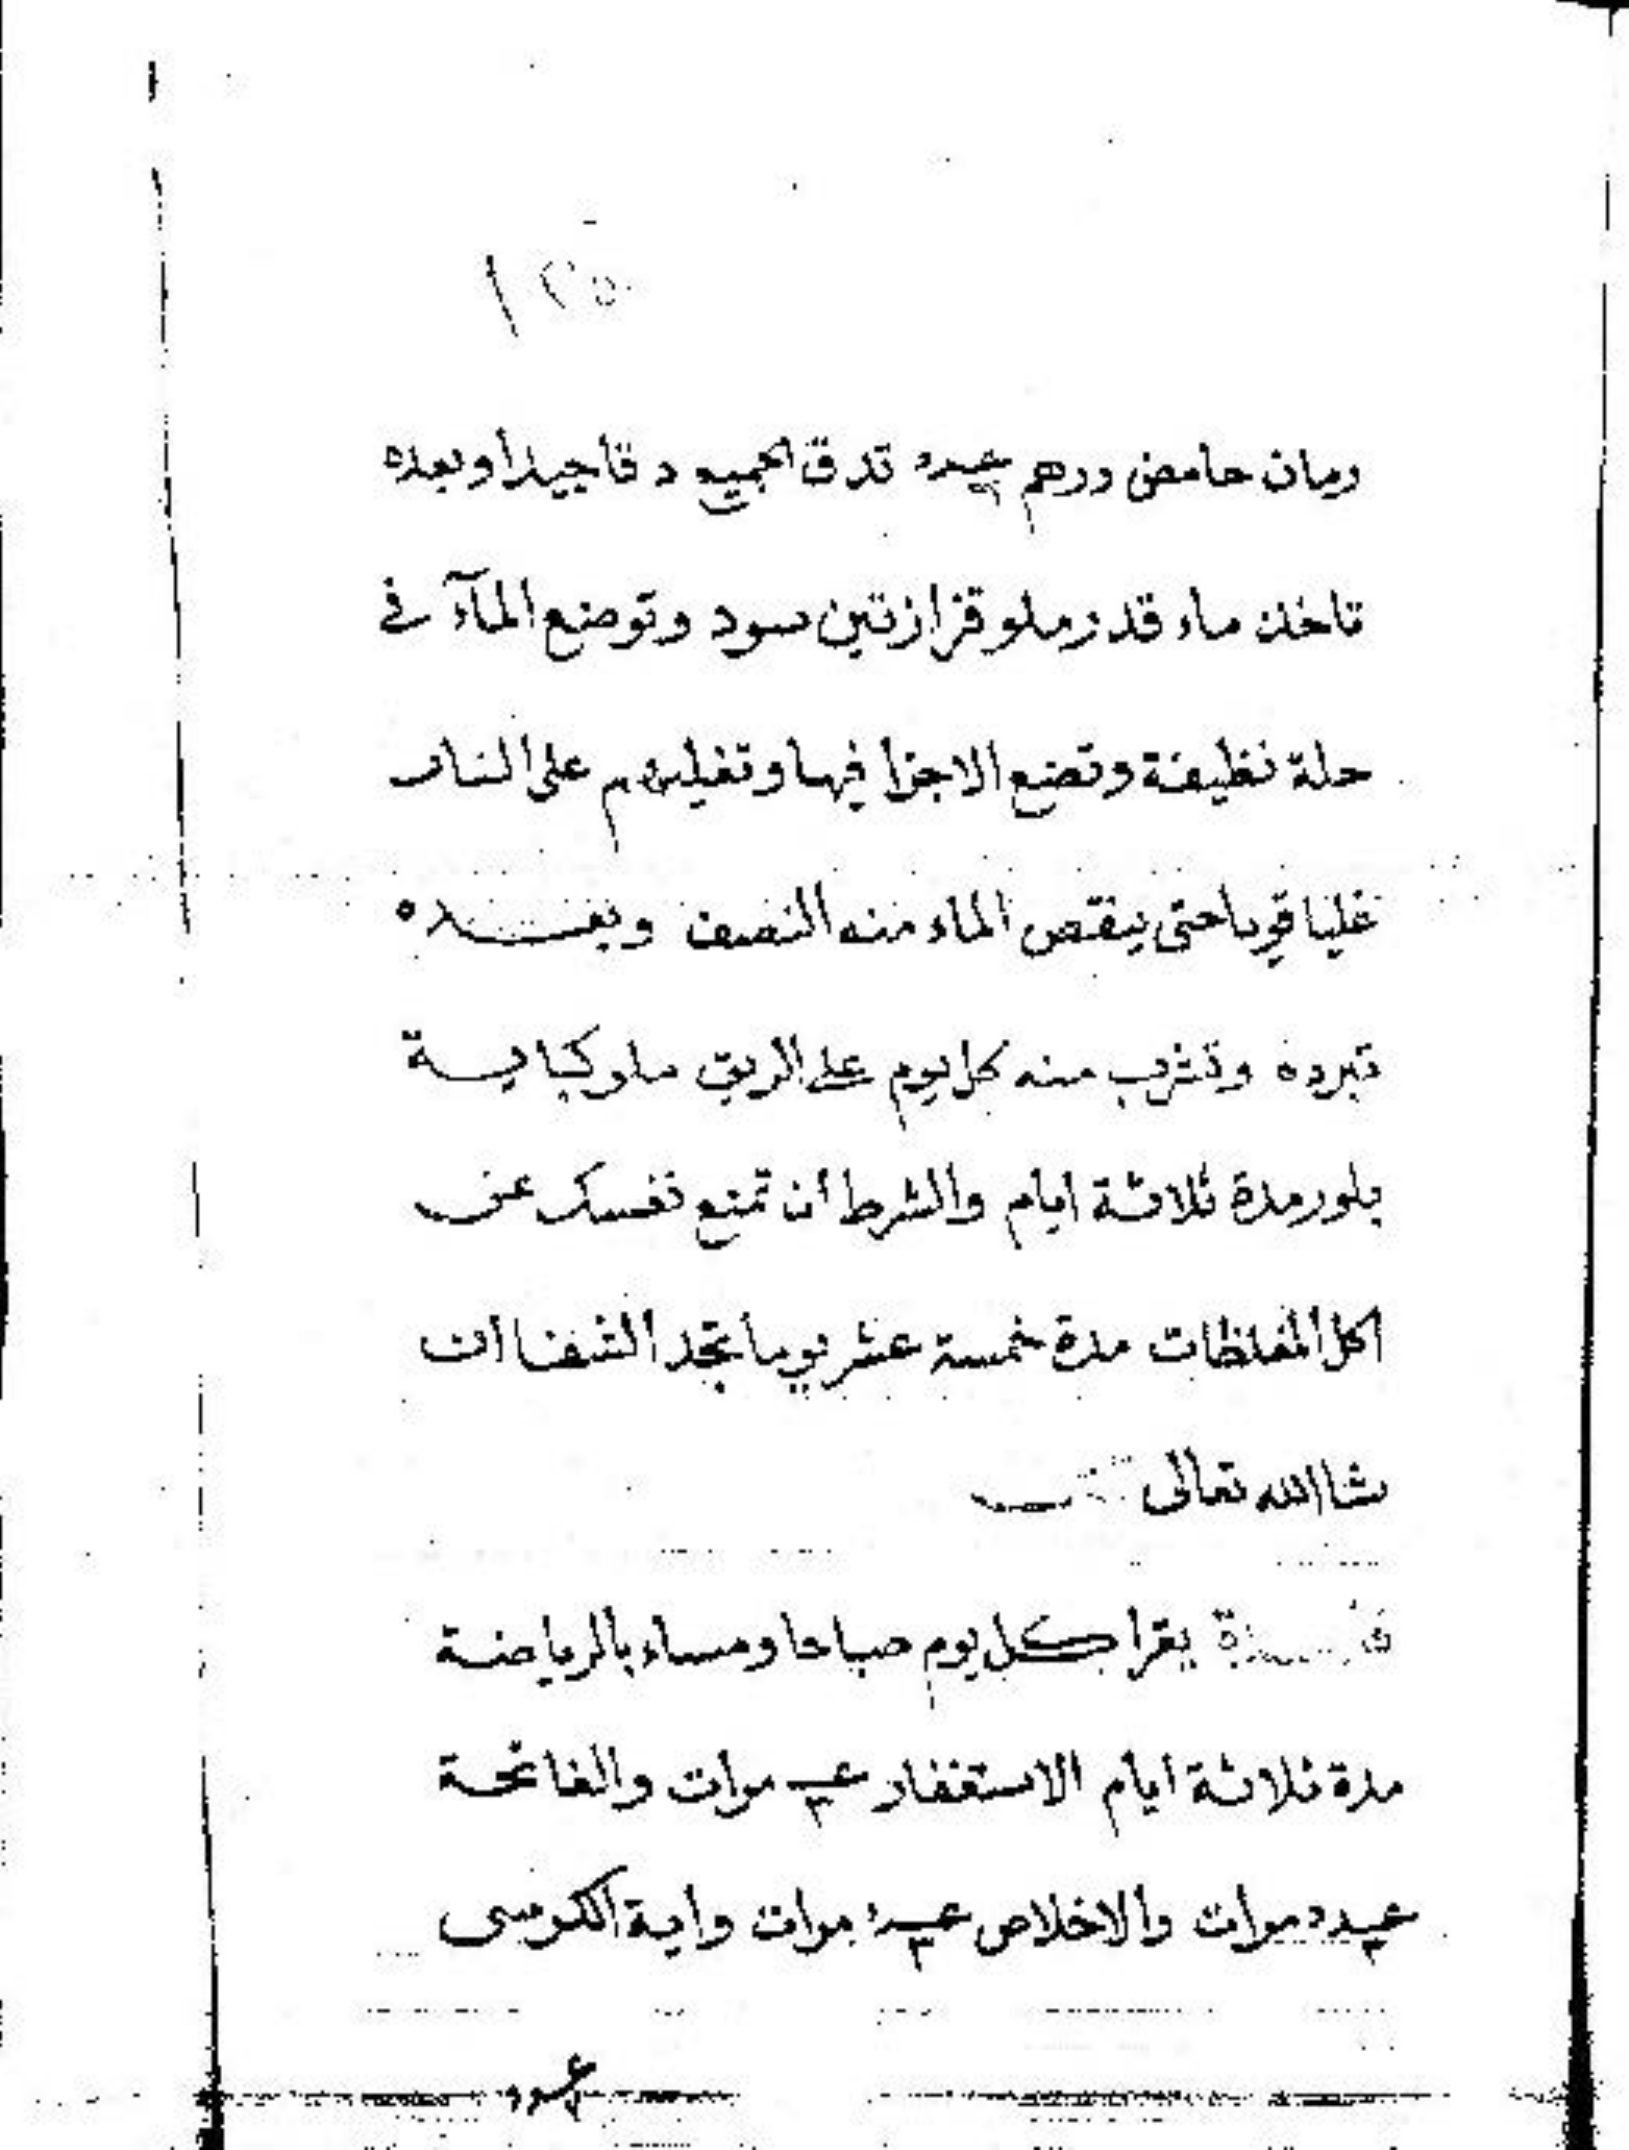 ١٢٥
ورمان حامض ودرهم عدد تدق الجميع دقا جيدا وبعده
تاخذ ماء قدر ملو قزازتين سود وتوضع المآء فى
حلة نظيفة وتضع الاجزا فيها وتغليهم على النار
غليا قويا حتى ينقص الماء منه النصف وبعده
تبرده وتشرب منه كل يوم على الريق ملو كباية
بلور مدة ثلاثة ايام والشرط أن تمنع نفسك عن
اكل المغلظات مدة خمسة عشر يوما تجد الشفا ان
شا الله تعالى
فائدة يقرا كل يوم صباحا ومساء بالرياضة
مدة ثلاثة ايام الاستغفار مرات والفاتحة
عدد مرات والاخلاص مرات واية الكرسى